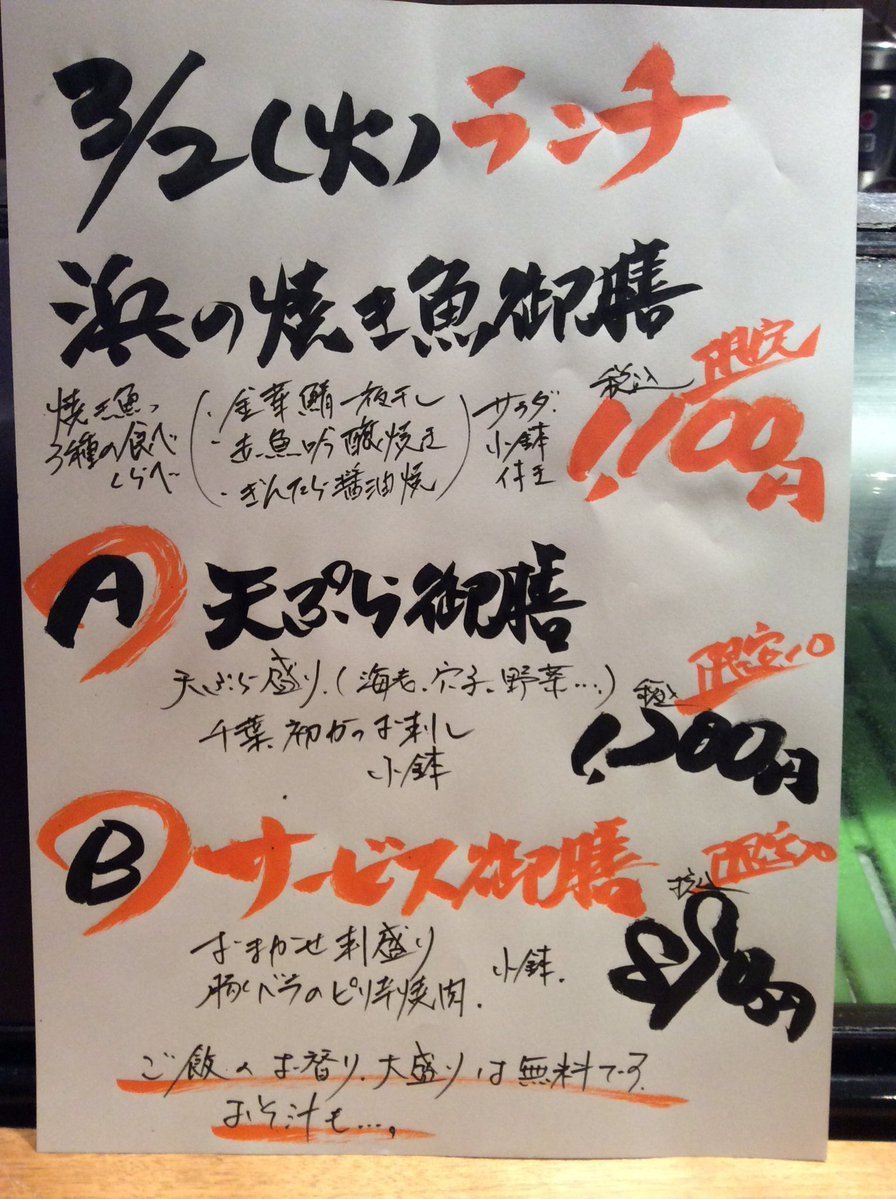 3/2(火)ランチ
浜の焼き魚御膳
限定
税込
1,100円
焼き魚
3種の食べ
くらべ
・金華鯖一夜干し
・赤魚吟醸焼き
・ぎんたら醤油焼
サラダ.
小鉢
付き
A 天ぷら御膳
天ぷら盛り.(海老、穴子、野菜…)
税込
限定10
1,200円
千葉.初かつお刺し
小鉢
B サービス御膳
税込
おまかせ刺盛り
豚バラのピリ辛焼肉.
小鉢.
ご飯のお替り.大盛りは無料です.
おみそ汁も…,